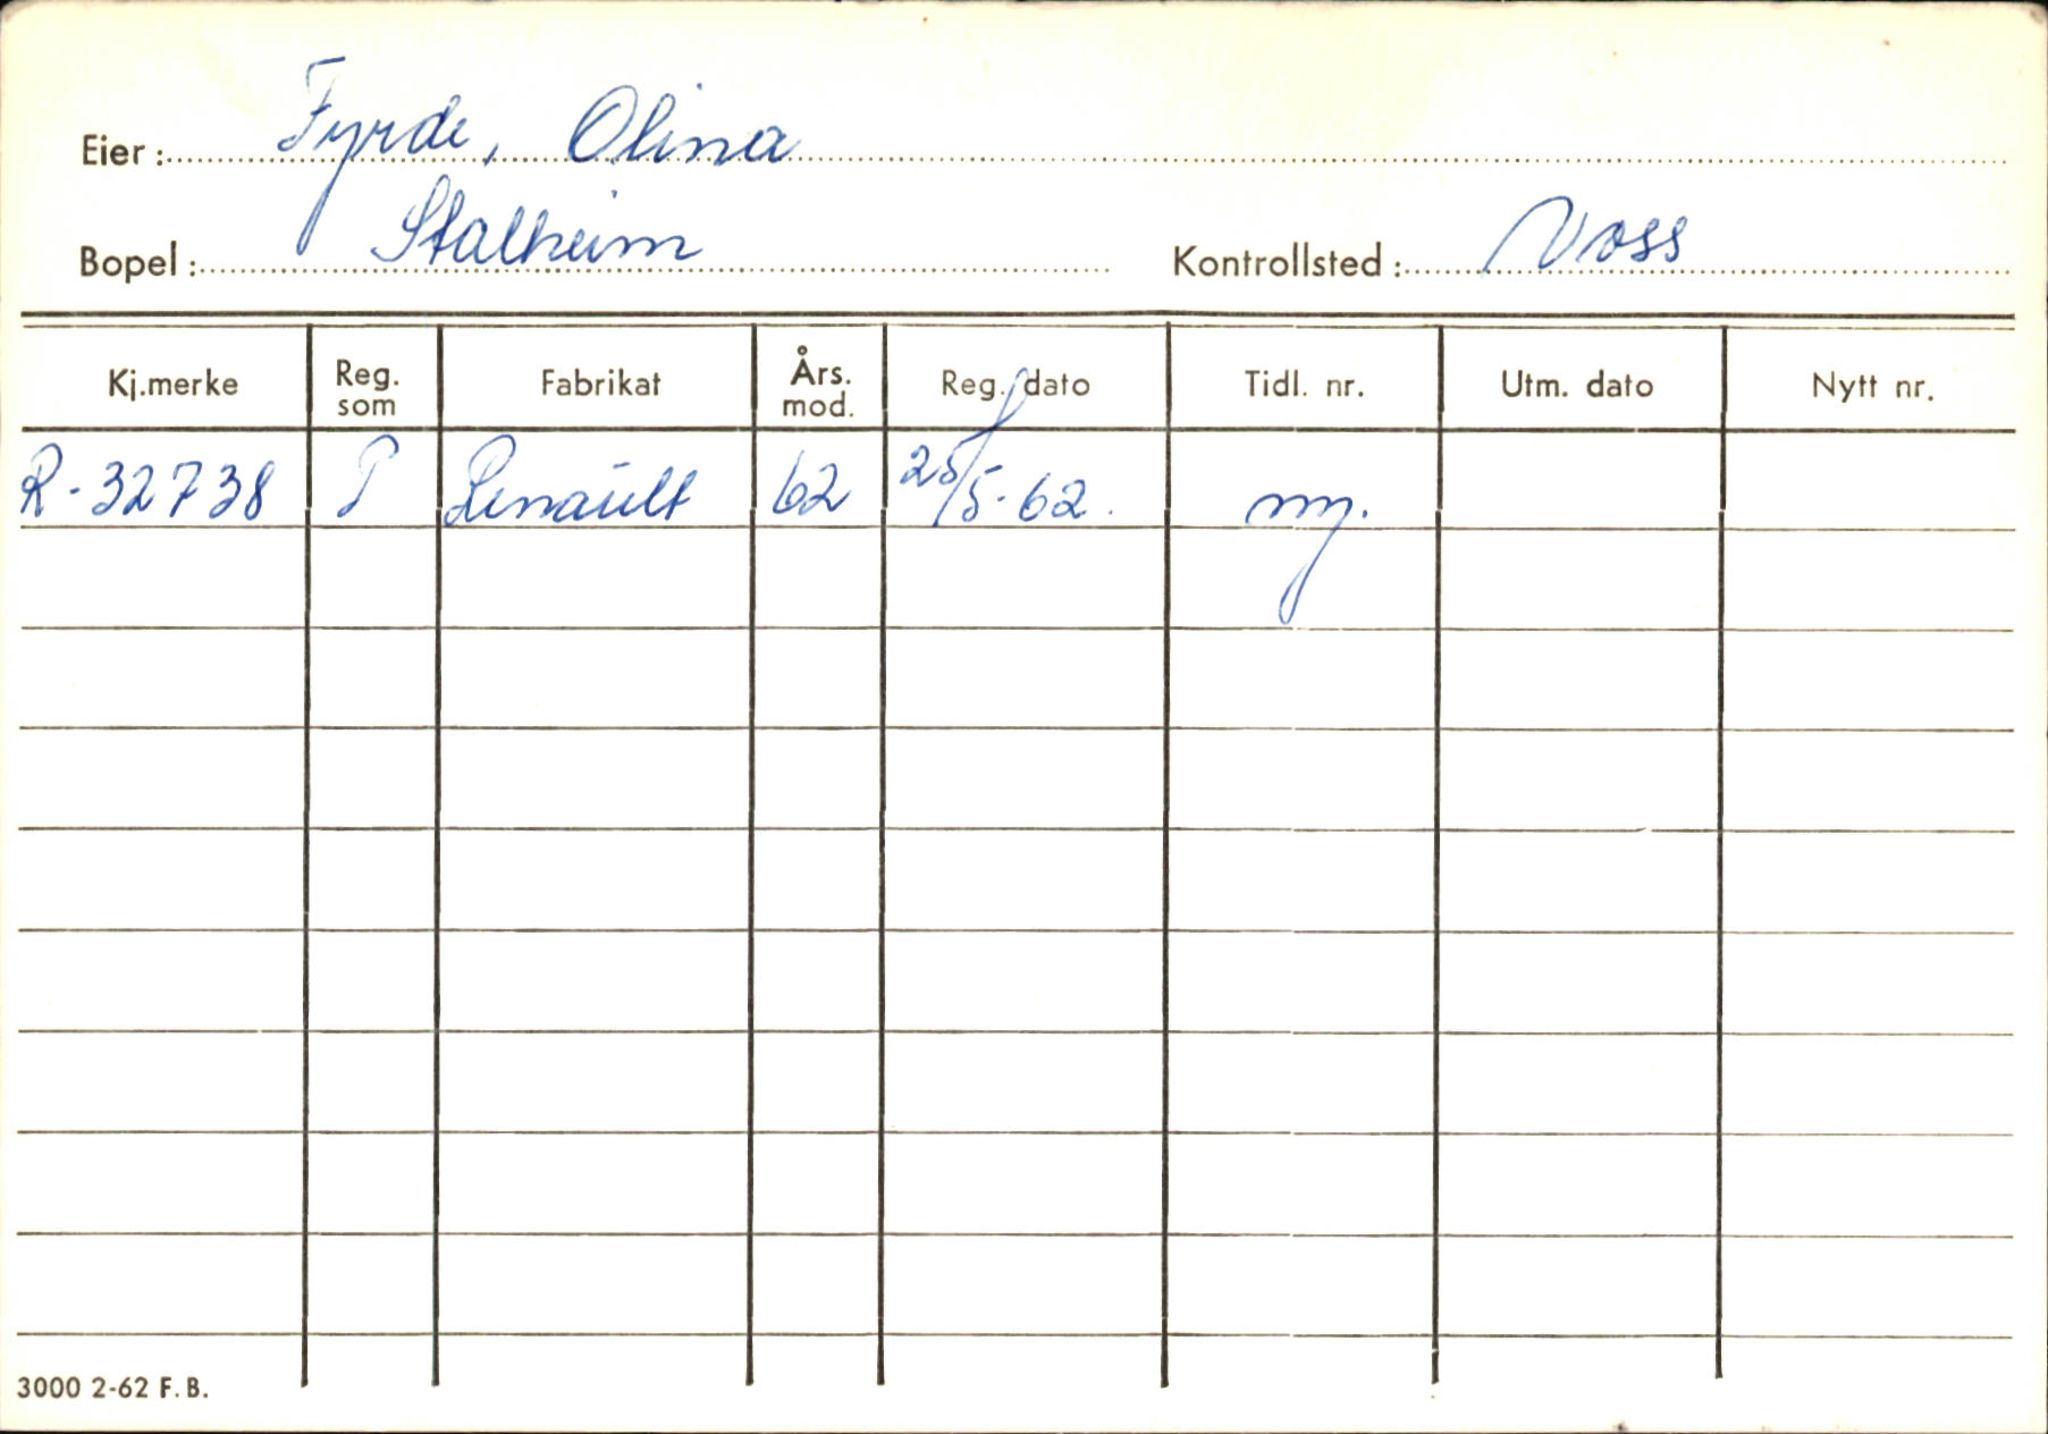 Eier: Fyrde, Olina
Bopel: Stalheim Kontrollsted: Voss
Kj.merke Reg. som Fabrikat Års. mod. Reg. dato Tidl. nr. Utm. dato Nytt nr.
R-32738 P Renault 62 25/5-62. ny.
3000 2-62 F.B.